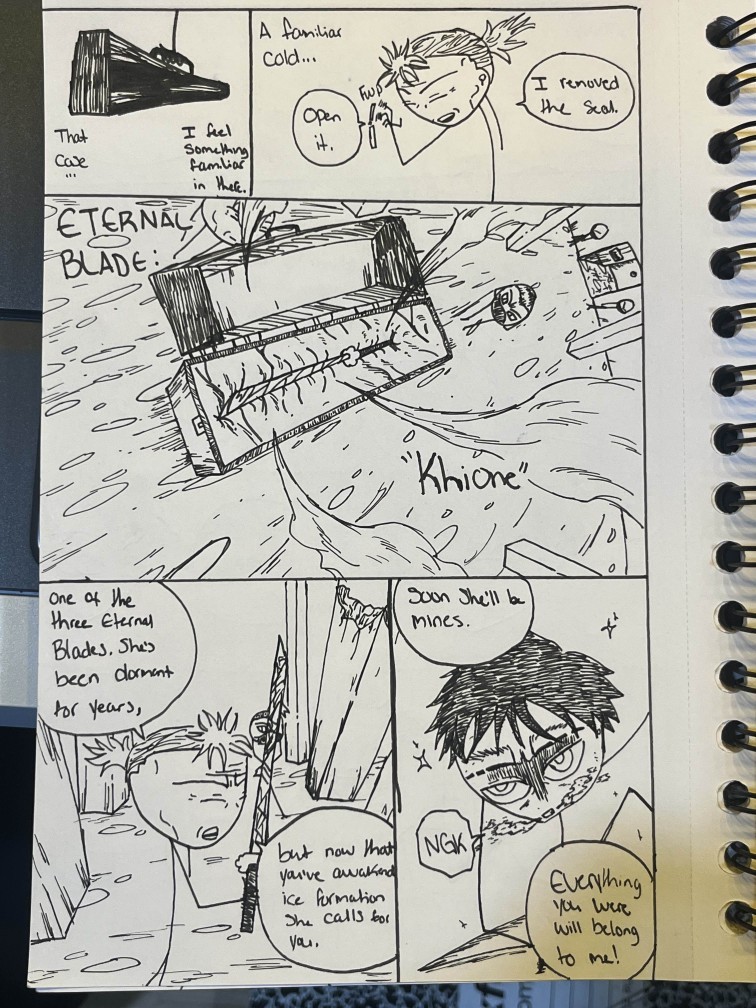 That
Case
...
I feel
Something
familiar
in there.
A familiar
Cold...
Fwp
Open
it.
I removed
the Seal.
ETERNAL
BLADE:
"Khione"
One of the
three Eternal
Blades. She's
been dormant
for years,
but now that
you've awakend
ice formation
She calls for
you.
Soon She'll be
mines.
NGK
Everything
you were
will belong
to me!